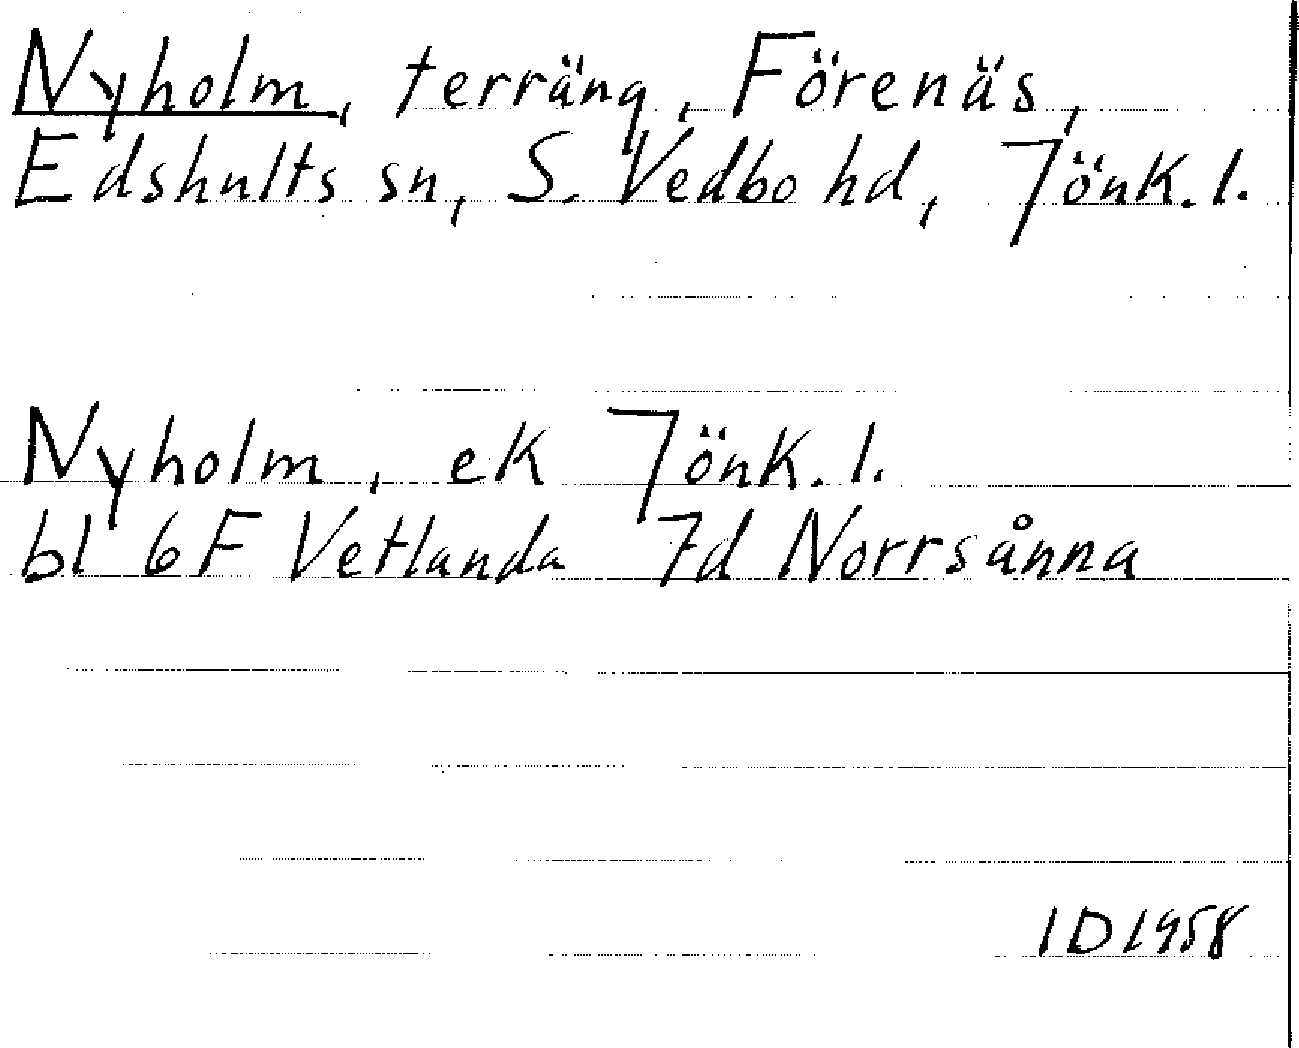 Nyholm, terräng, Förenäs,
Edshults sn, S. Vedbo hd, Jönk. l.
Nyholm, ek Jönk. l.
bl 6F Vetlanda 7d Norrsånna
ID 1958